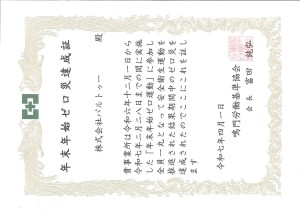 年末年始ゼロ災達成証
株式会社バルトゥー 殿
貴事業所は令和六年十二月一日から
令和七年二月二八日までの間に実施
した「年末年始ゼロ運動」に参加し
全員一丸となって安全衛生運動を
推進された結果期間中のゼロ災を
達成されたのでここにこれを証し
ます
令和七年四月一日
鳴門労働基準協会
会長 富田 純弘